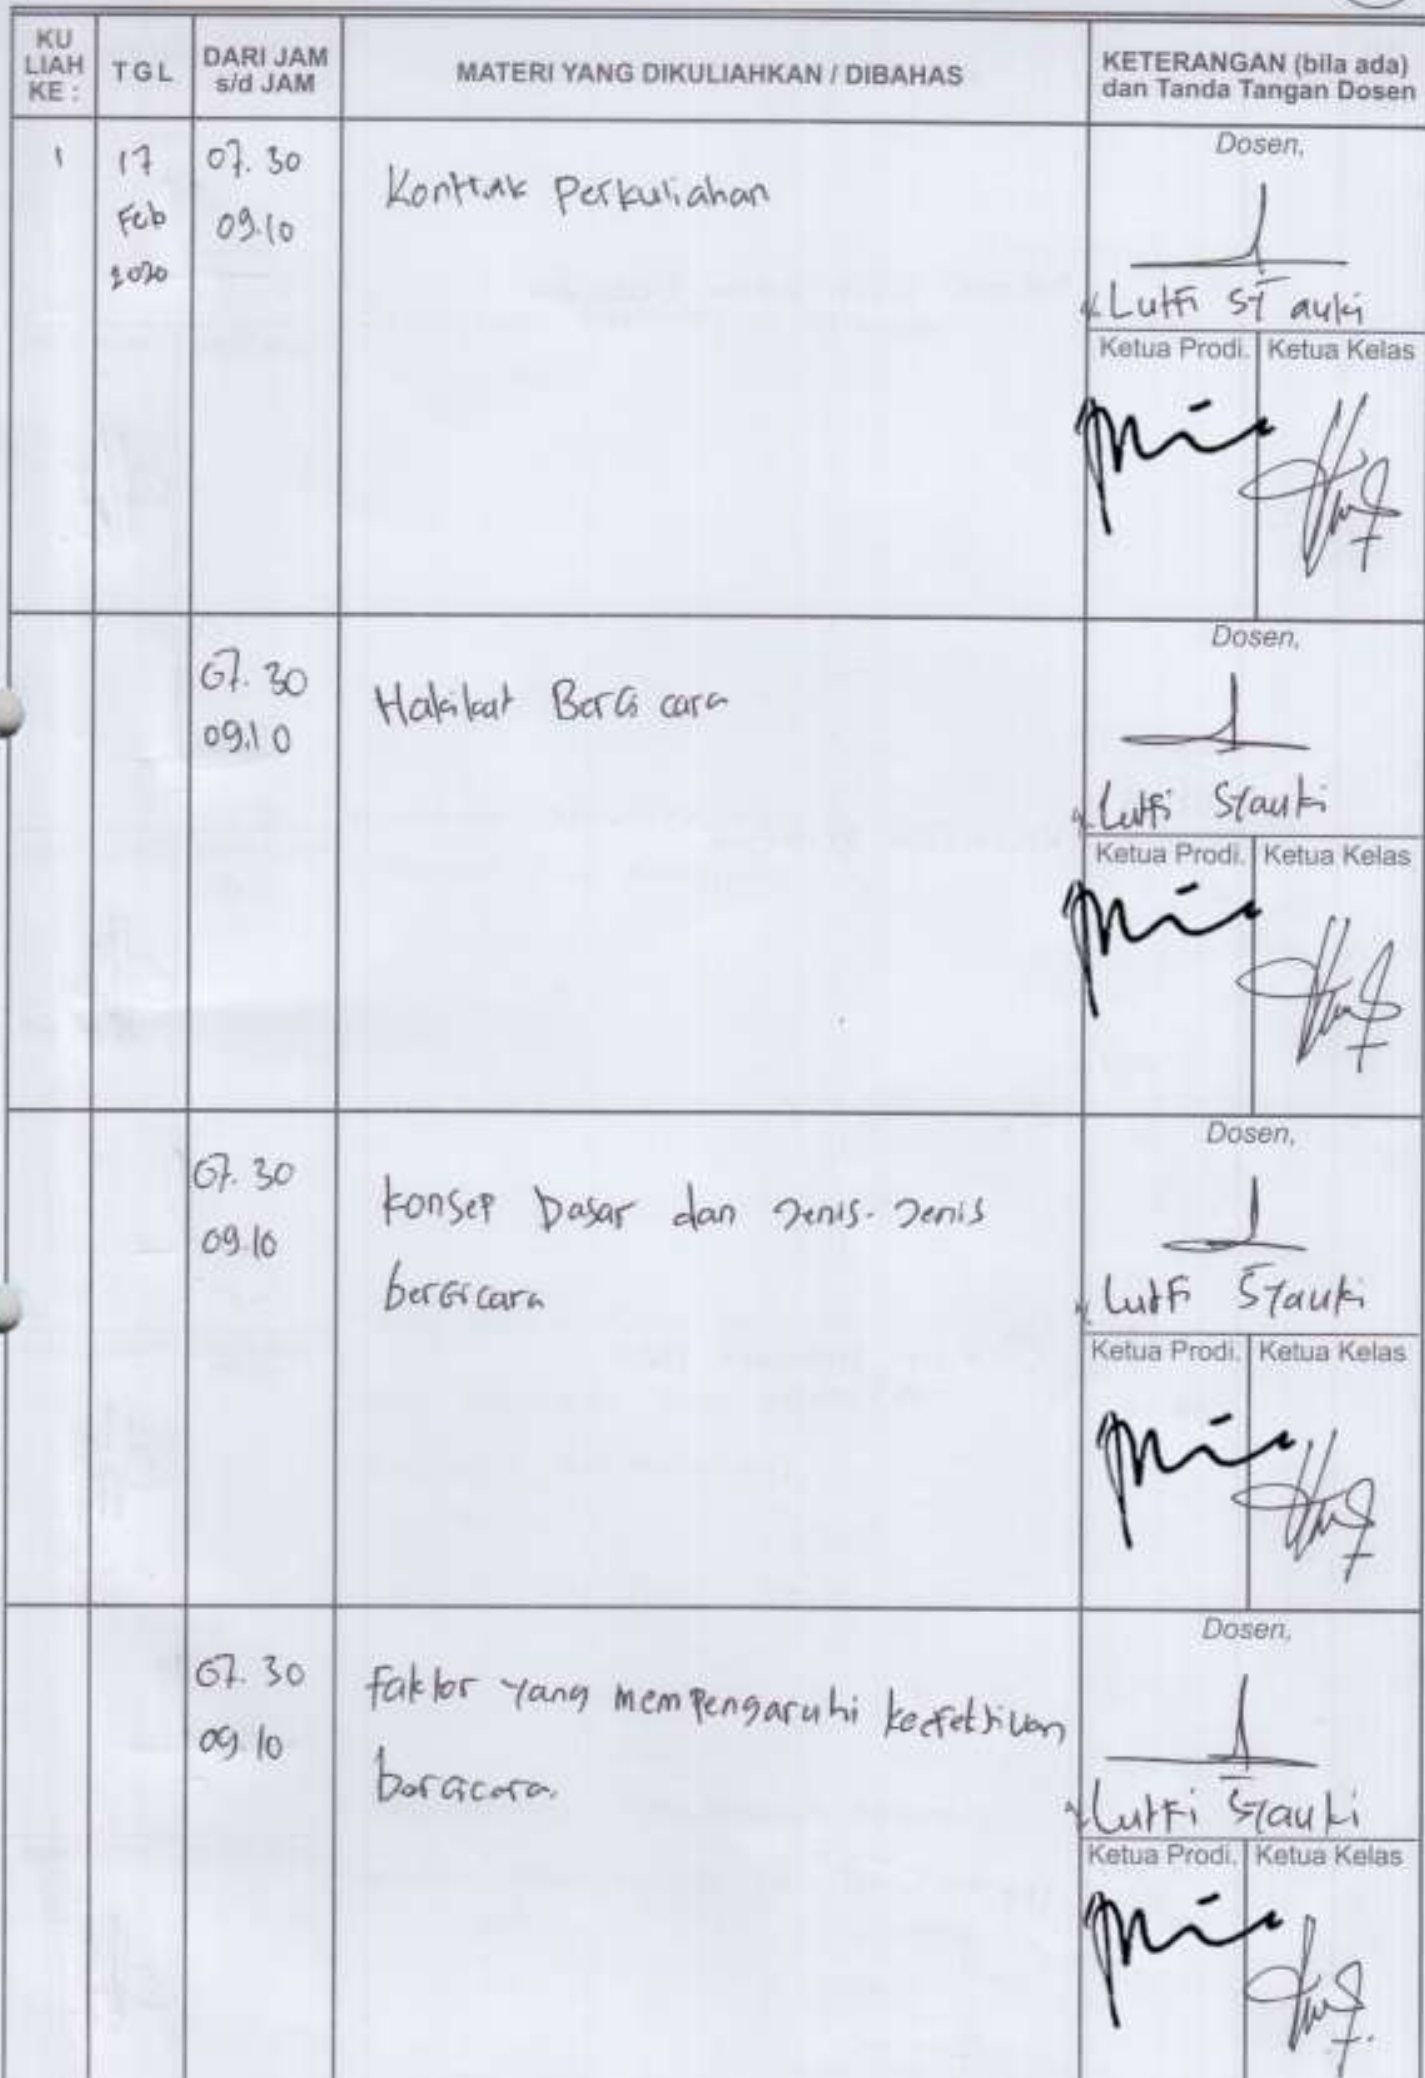 KU LIAH KE :
TGL
DARI JAM s/d JAM
MATERI YANG DIKULIAHKAN / DIBAHAS
KETERANGAN (bila ada) dan Tanda Tangan Dosen
1
17
Feb
2020
07.30
09.10
Kontrak Perkuliahan
Dosen,
Lutfi Syauki
Ketua Prodi. Ketua Kelas
07.30
09.10
Hakikat Berbicara
Dosen,
Lutfi Syauki
Ketua Prodi. Ketua Kelas
07.30
09.10
Konsep Dasar dan Jenis-Jenis
berbicara
Dosen,
Lutfi Syauki
Ketua Prodi. Ketua Kelas
07.30
09.10
Faktor yang mempengaruhi keefektivan
berbicara.
Dosen,
Lutfi Syauki
Ketua Prodi. Ketua Kelas